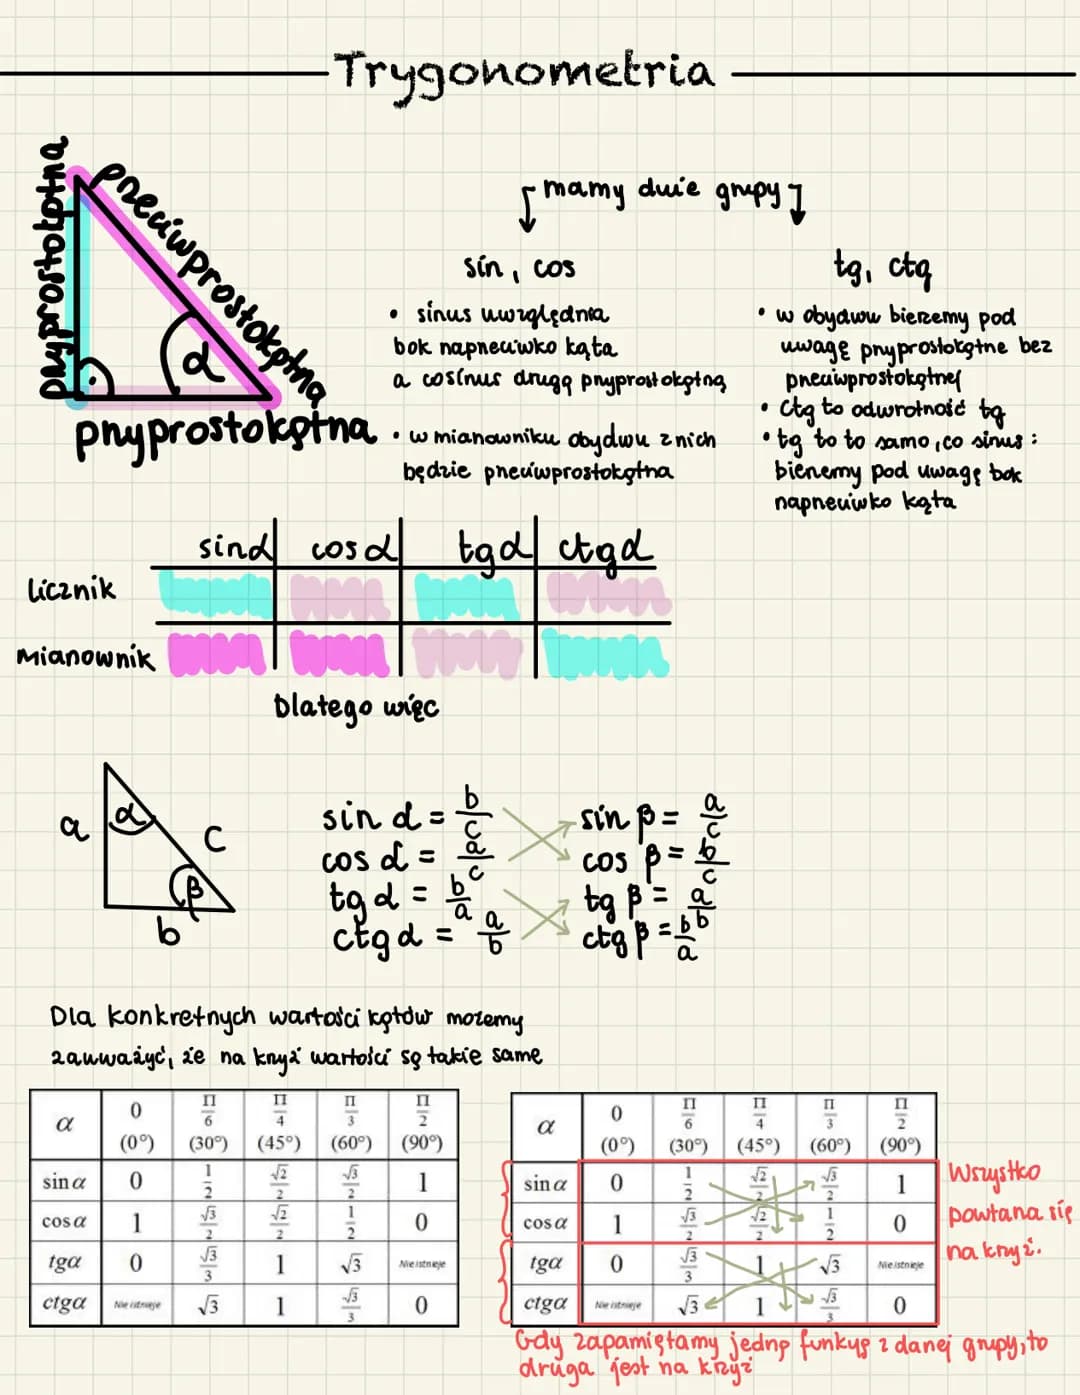 Trygonometria
przyprostokątna
przeciwprostokątna
α
przyprostokątna
mamy dwie grupy
sin, cos
• sinus uwzględnia
bok naprzeciwko kąta
a cosinus drugą przyprostokątną
• w mianowniku obydwu z nich
będzie przeciwprostokątna
tg, ctg
• w obydwu bierzemy pod
uwagę przyprostokątne bez
przeciwprostokątnej
• ctg to odwrotność tg
• tg to to samo, co sinus:
bierzemy pod uwagę bok
naprzeciwko kąta
sinα cosα tgα ctgα
Licznik
Mianownik
Dlatego więc
a α c β b
sin α = b/c sin β = a/c
cos α = a/c cos β = b/c
tg α = b/a tg β = a/b
ctg α = a/b ctg β = b/a
Dla konkretnych wartości kątów możemy
zauważyć, że na krzyż wartości są takie same
α 0 (0°) Π/6 (30°) Π/4 (45°) Π/3 (60°) Π/2 (90°)
sin α 0 1/2 √2/2 √3/2 1
cos α 1 √3/2 √2/2 1/2 0
tgα 0 √3/3 1 √3 Nie istnieje
ctgα Nie istnieje √3 1 √3/3 0
α 0 (0°) Π/6 (30°) Π/4 (45°) Π/3 (60°) Π/2 (90°)
sin α 0 1/2 √2/2 √3/2 1
cos α 1 √3/2 √2/2 1/2 0
tgα 0 √3/3 1 √3 Nie istnieje
ctgα Nie istnieje √3 1 √3/3 0
Wszystko
powtarza się
na krzyż.
Gdy zapamiętamy jedną funkcję z danej grupy, to
druga jest na krzyż